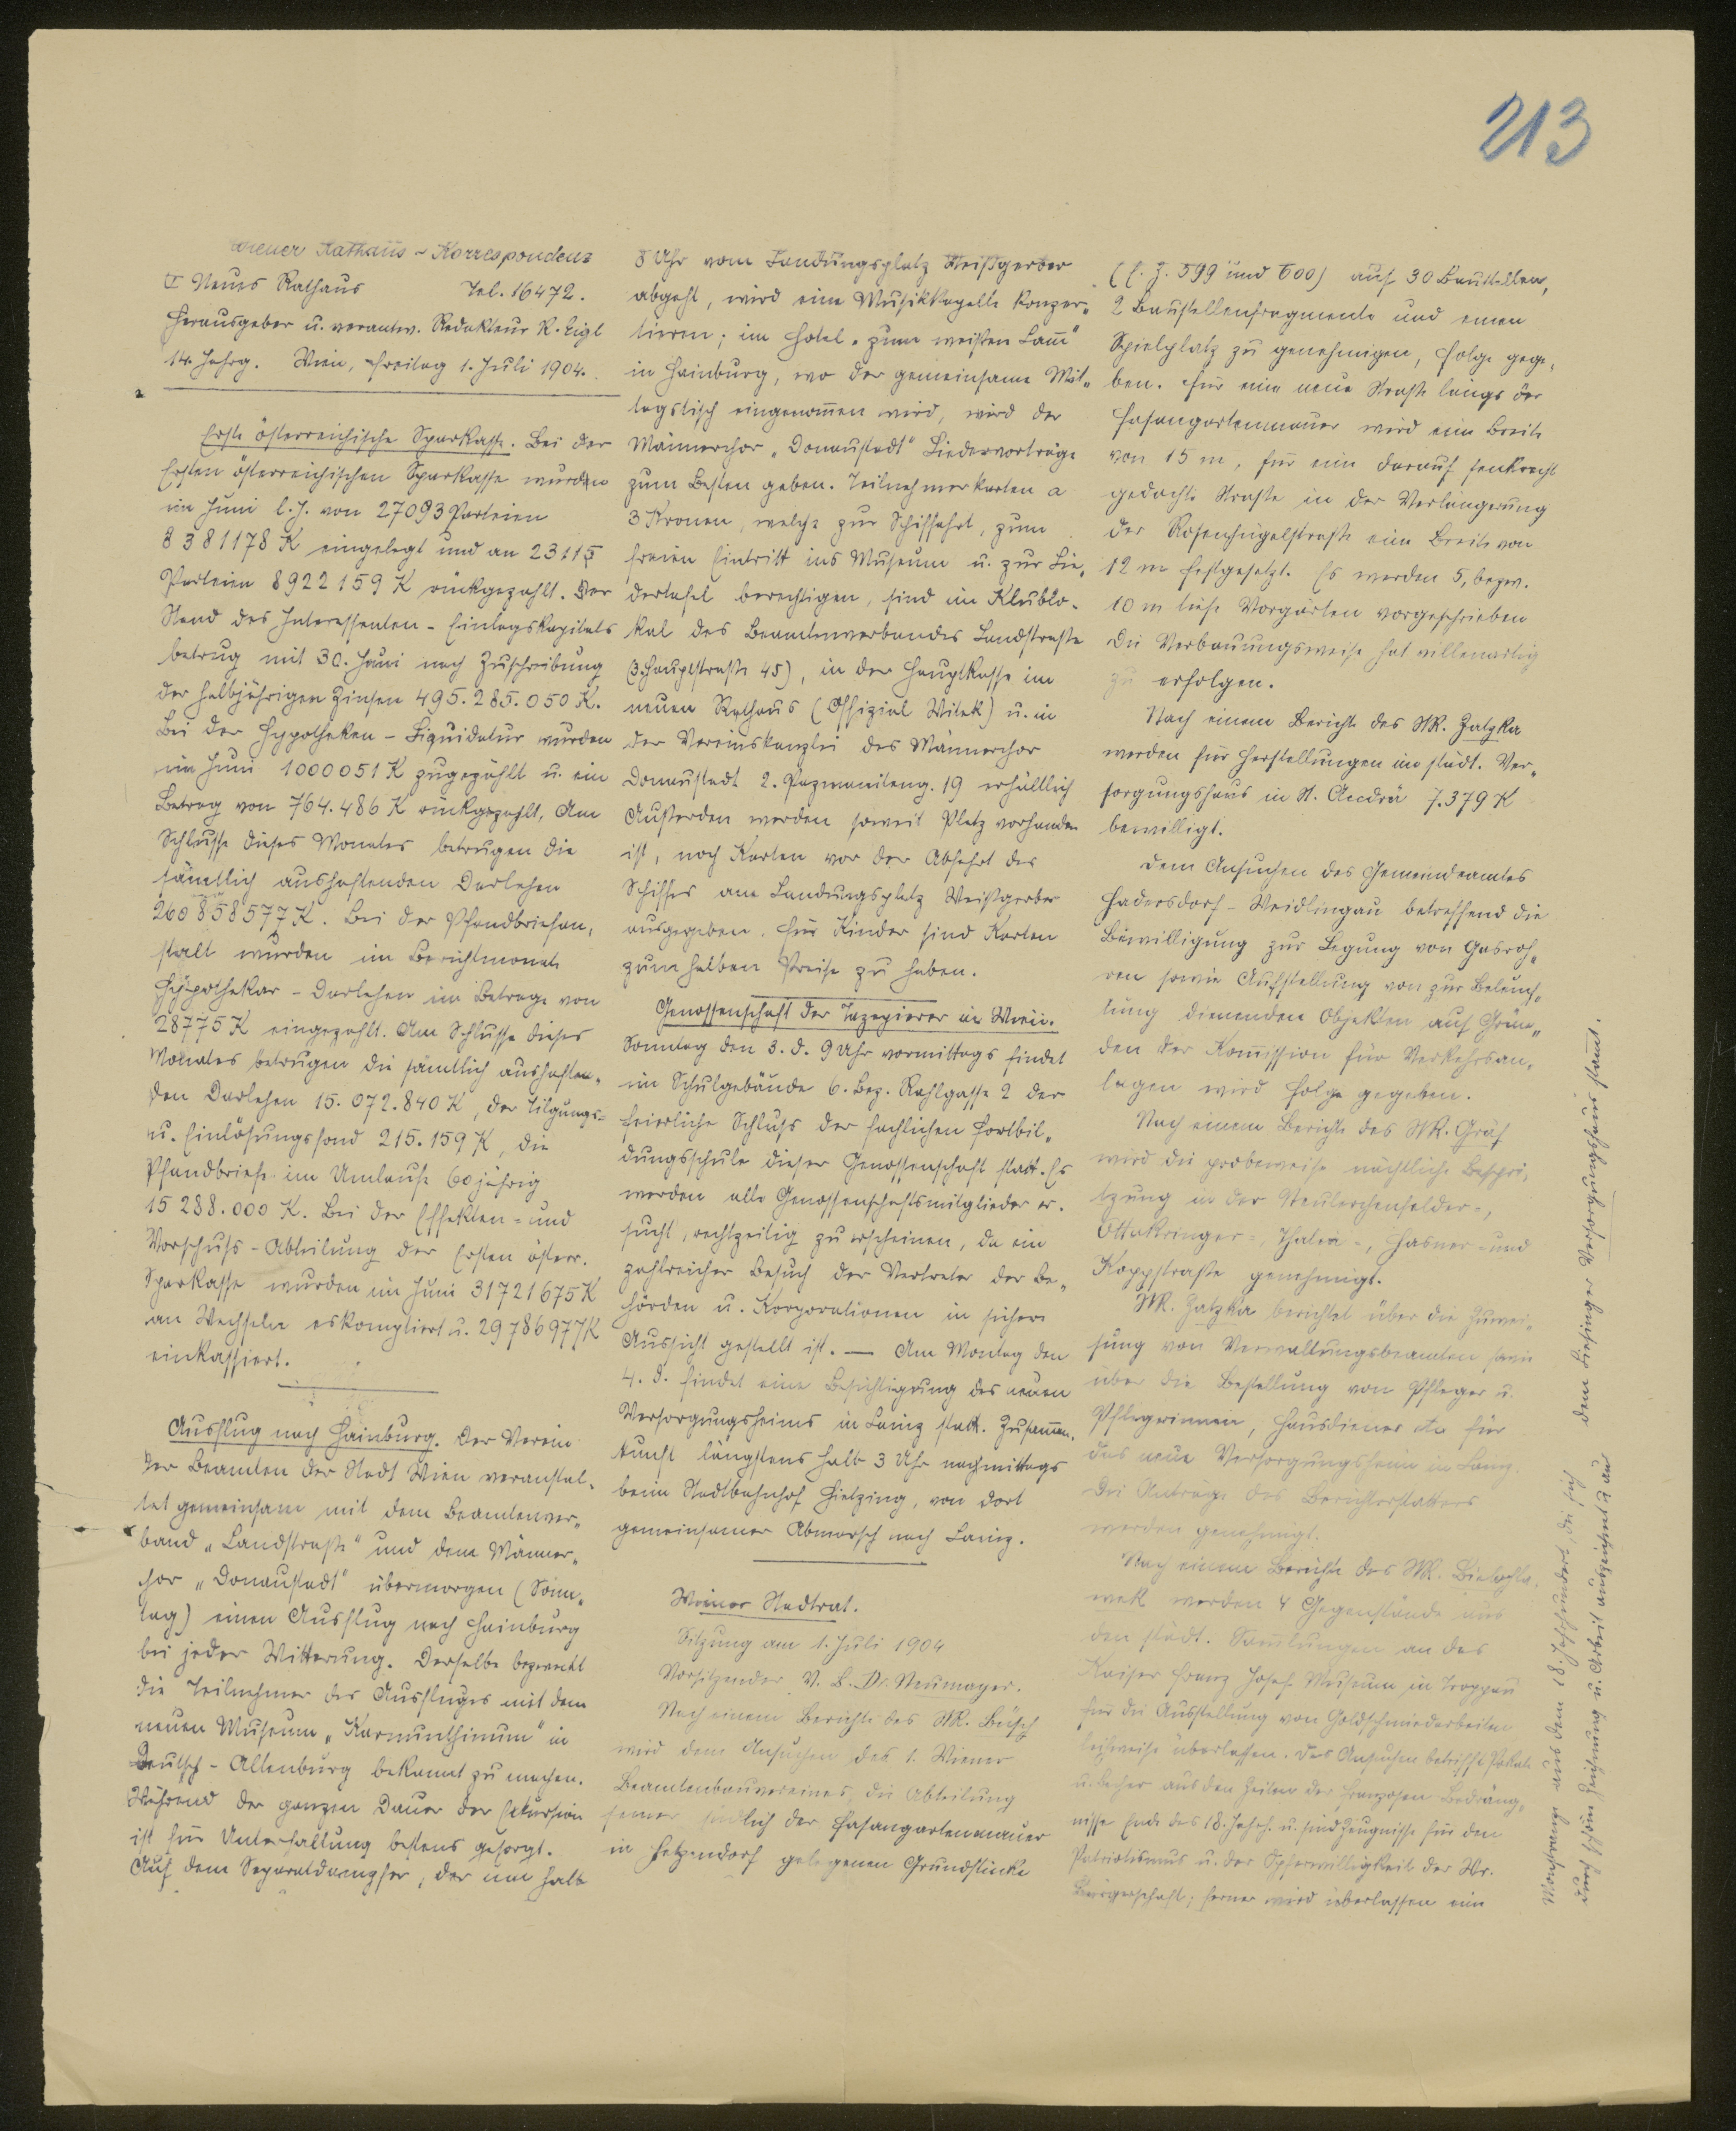 213
Wiener Rathaus-Korrespondenz
I Neues Rathaus Tel. 16472.
Herausgeber u. verantw. Redakteur R. Eigl
14. Jahrg. Wien, Freitag 1. Juli 1904.
Erste österreichische Sparkasse. Bei der
Ersten österreichischen Sparkasse wurden
im Juni l. J. von 27093 Parteien
8381178 K eingelegt und an 23115
Parteien 8922159 K rückgezahlt. Der
Stand des Interessenten-Einlagskapitals
betrug mit 30. Juni nach Zuschreibung
der halbjährigen Zinsen 495.285.050 K.
Bei der Hypotheken-Liquidatur wurden
im Juni 1000051 K zugezählt u. ein
Betrag von 764.486 K rückgezahlt. Am
Schlusse dieses Monates betrugen die
sämtlich aushaftenden Darlehen
260858577 K. Bei der Pfandbriefan„
stalt wurden im Berichtmonate
Hypothekar-Darlehen im Betrage von
28775 K eingezahlt. Am Schlusse dieses
Monates betrugen die sämtlich aushaften„
den Darlehen 15.072.840 K, der Tilgungs=
u. Einlösungsfond 215.159 K, die
Pfandbriefe im Umlaufe 60jährig
15288.000 K. Bei der Effekten= und
Vorschuß-Abteilung der Ersten österr.
Sparkasse wurden im Juni 31721675 K
an Wechseln eskomptiert u. 29786977 K
einkassiert.
Ausflug nach Hainburg. Der Verein
der Beamten der Stadt Wien veranstal„
tet gemeinsam mit dem Beamtenver„
band „Landstraße" und dem Männer„
chor „Donaustadt" übermorgen (Sonn„
tag) einen Ausflug nach Hainburg
bei jeder Witterung. Derselbe bezweckt
die Teilnehmer des Ausfluges mit dem
neuen Museum „Karnunthinum" in
Deutsch-Altenburg bekannt zu machen.
Während der ganzen Dauer der Exkursion
ist für Unterhaltung bestens gesorgt.
Auf dem Separatdampfer, der um halb
8 Uhr vom Landungsplatz Weißgerber
abgeht, wird eine Musikkapelle konzer„
tieren; im Hotel „zum weißen Lam̅"
in Hainburg, wo der gemeinsame Mit„
tagstisch eingenom̅en wird, wird der
Männerchor „Donaustadt" Liedervorträge
zum Besten geben. Teilnehmerkarten a
3 Kronen, welche zur Schiffahrt, zum
freien Eintritt ins Museum u. zur Lie„
dertafel berechtigen, sind im Klublo-
kal des Beamtenverbandes Landstraße
(3. Hauptstraße 45), in der Hauptkasse im
neuen Rathaus (Offizial Witek) u. in
der Vereinskanzlei des Männerchor
Donaustadt 2. Pazmaniteng. 19 erhältlich
Außerden werden soweit Platz vorhanden
ist, noch Karten vor der Abfahrt des
Schiffes am Landungsplatz Weißgerber
ausgegeben. Für Kinder sind Karten
zum halben Preise zu haben.
Genossenschaft der Tapezierer in Wien.
Sonntag den 3. d. 9 Uhr vormittags findet
im Schulgebäude 6. Bez. Rahlgasse 2 der
feierliche Schluß der fachlichen Fortbil„
dungsschule dieser Genossenschaft statt. Es
werden alle Genossenschaftsmitglieder er-
sucht, rechtzeitig zu erscheinen, da ein
zahlreicher Besuch der Vertreter der Be„
hörden u. Korporationen in sichere
Aussicht gestellt ist. — Am Montag den
4. d. findet eine Besichtigung des neuen
Versorgungsheims in Lainz statt. Zusam̅en„
kunft längstens halb 3 Uhr nachmittags
beim Stadtbahnhof Hietzing, von dort
gemeinsamer Abmarsch nach Lainz.
Wiener Stadtrat.
Sitzung am 1. Juli 1904
Vorsitzender V. B. Dr. Neumayer.
Nach einem Berichte des StR. Büsch
wird dem Ansuchen des 1. Wiener
Beamtenbauvereines, die Abteilung
seiner südlich der Fasangartenmauer
in Hetzendorf gelegenen Grundstücke
(E. Z. 599 und 600) auf 30 Baustellen,
2 Baustellenfragmente und einen
Spielplatz zu genehmigen, Folge gege„
ben. Für eine neue Straße längs der
Fasangartenmauer wird eine Breite
von 15 m, für eine darauf senkrecht
gedachte Straße in der Verlängerung
der Rosenhügelstraße eine Breite von
12 m festgesetzt. Es werden 5, bezw.
10 m tiefe Vorgärten vorgeschrieben
Die Verbauungsweise hat villenartig
zu erfolgen.
Nach einem Berichte des StR. Zatzka
werden für Herstellungen im städt. Ver„
sorgungshaus in St. Andrä 7.379 K
bewilligt.
Dem Ansuchen des Gemeindeamtes
Hadersdorf-Weidlingau betreffend die
Bewilligung zur Legung von Gasroh„
ren sowie Aufstellung von zur Beleuch„
tung dienenden Objekten auf Grün„
den der Kom̅ission für Verkehrsan„
lagen wird Folge gegeben.
Nach einem Berichte des StR. Gräf
wird die probeweise nächtliche Bespri„
tzung in der Neulerchenfelder=,
Ottakringer=, Thalia=, Hasner= und
Koppstraße genehmigt.
StR. Zatzka berichtet über die Zuwei„
sung von Verwaltungsbeamten sowie
über die Bestellung von Pfleger u.
Pflegerinnen, Hausdiener etc für
das neue Versorgungsheim in Lainz.
Die Anträge des Berichterstatters
werden genehmigt.
Nach einem Berichte des StR. Bielohla„
wek werden 4 Gegenstände aus
den städt. Sam̅lungen an das
Kaiser Franz Josef Museum in Troppau
für die Ausstellung von Goldschmiedarbeiten
leihweise überlassen. Das Ansuchen betrifft Pokale
u. Becher aus den Zeiten der Franzosen Bedräng„
nisse Ende des 18. Jahrh. u. sind Zeugnisse für den
Patriotismus u. der Opferwilligkeit der Wr.
Bürgerschaft; ferner wird überlassen eine
Monstranze aus dem 18. Jahrhundert, die sich
durch schöne Zeichnung u. Arbeit auszeichnet u. aus
dem Liesinger Versorgungshaus stam̅t.